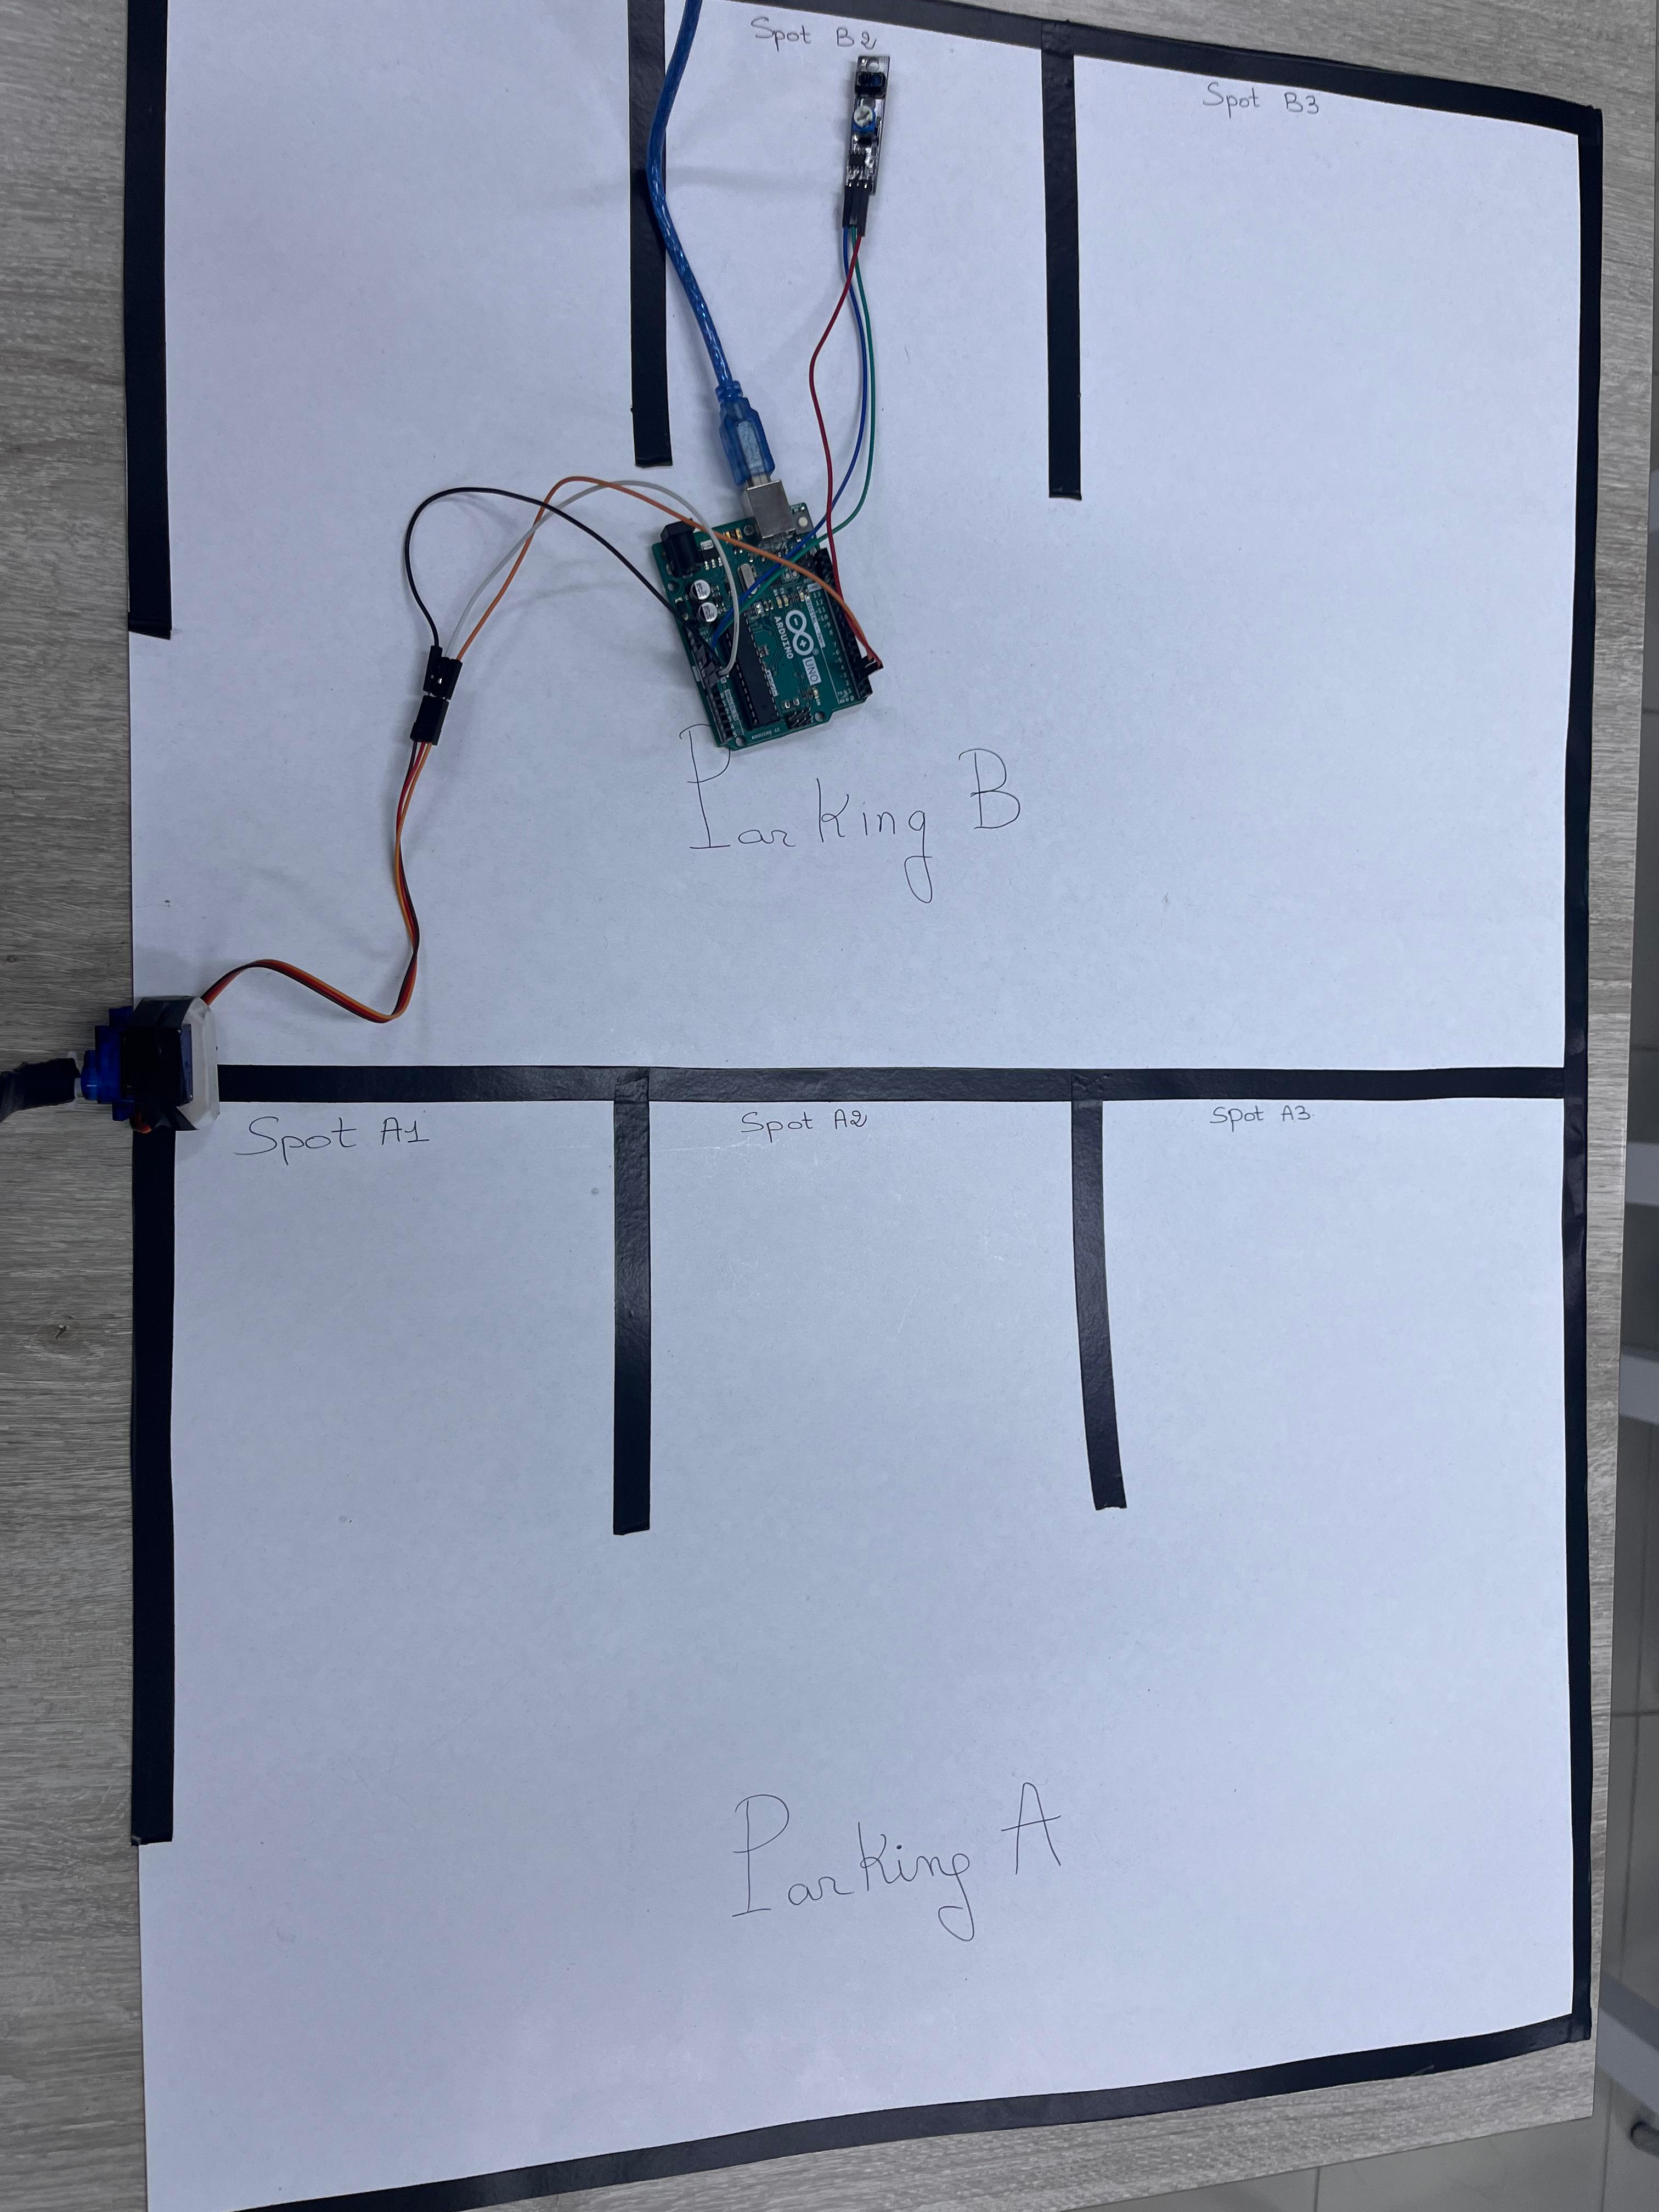 Spot B2
Spot B3
ARDUINO
UNO
Parking B
Spot A1
Spot A2
Spot A3
Parking A